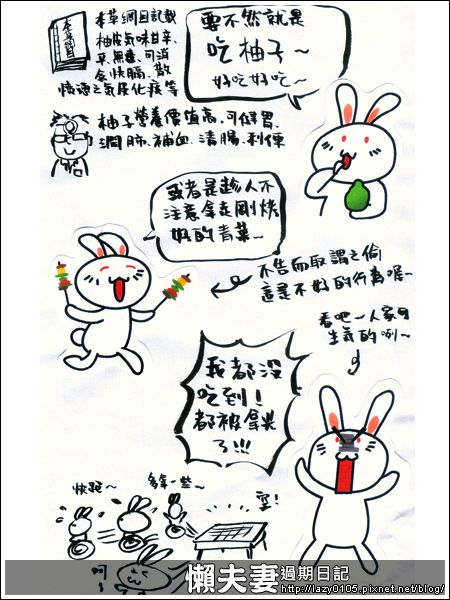 本草綱目記載
柚皮氣味甘辛、
平、無毒、可消
食快膈、散
憤懣之氣及化痰等
本草綱目
要不然就是
吃柚子~
好吃好吃~
柚子營養價值高,可健胃、
潤肺、補血、清腸、利便
或者是趁人不
注意拿走剛烤
好的青菜~
不告而取謂之偷
這是不好的行為喔~
看吧~人家可
生氣的咧~
我都沒
吃到!
都被拿光
了!!!
快跑~
多拿一些~
空!
呵
懶夫妻過期日記
http://lazy0105.pixnet.net/blog/